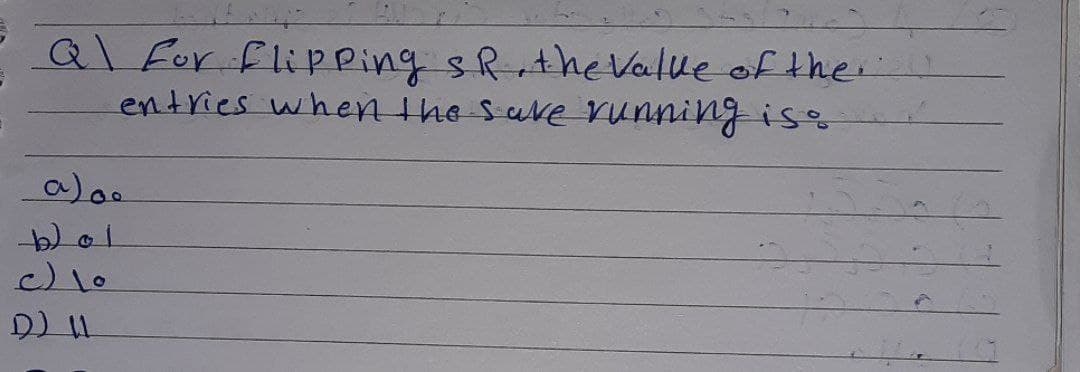 Q1 For flipping SR, the Value of the
entries when the save running is:
a) 00
b) 01
c) 10
D) 11